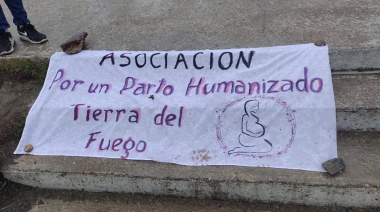 ASOCIACION
Por un Parto Humanizado
Tierra del
Fuego